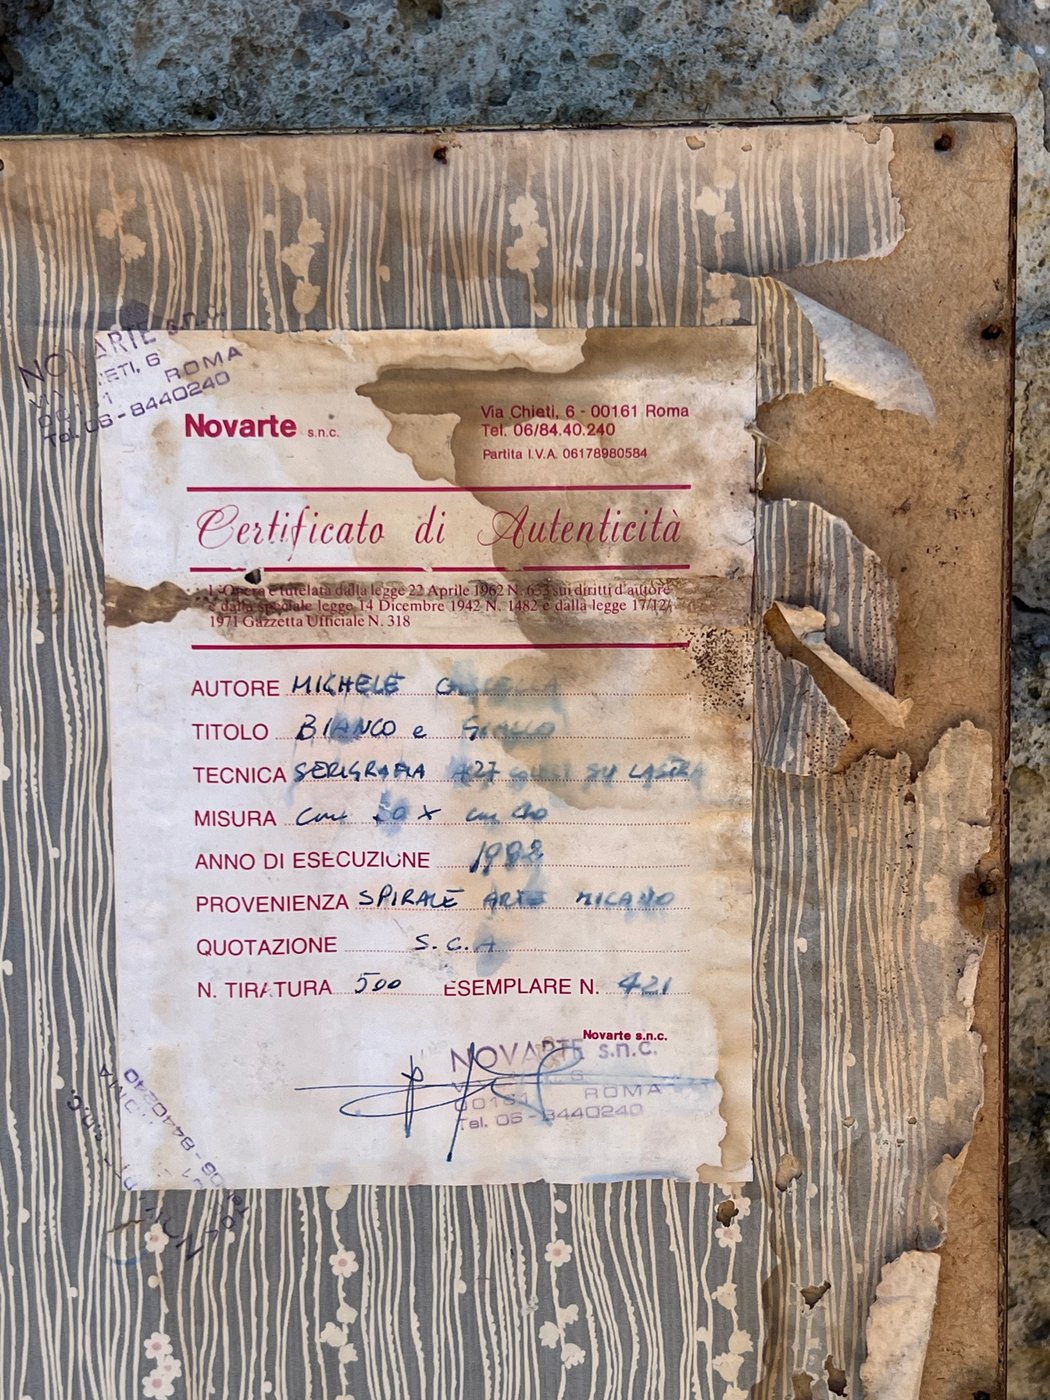 NOVARTE s.n.c.
ROMA
Tel. 06-8440240
Novarte s.n.c.
Via Chieti, 6 - 00161 Roma
Tel. 06/84.40.240
Partita I.V.A. 06178980584
Certificato di Autenticità
L'Opera è tutelata dalla legge 22 Aprile 1962 N. 633 sui diritti d'autore
e dalla speciale legge 14 Dicembre 1942 N. 1482 e dalla legge 17/12/
1971 Gazzetta Ufficiale N. 318
AUTORE MICHELE
TITOLO BIANCO e GIALLO
TECNICA SERIGRAFIA SU LASTRA
MISURA cm x cm
ANNO DI ESECUZIONE 1988
PROVENIENZA SPIRALE ARTE MILANO
QUOTAZIONE S.C.A
N. TIRATURA 500 ESEMPLARE N. 421
Novarte s.n.c.
NOVARTE s.n.c.
ROMA
Tel. 06-8440240